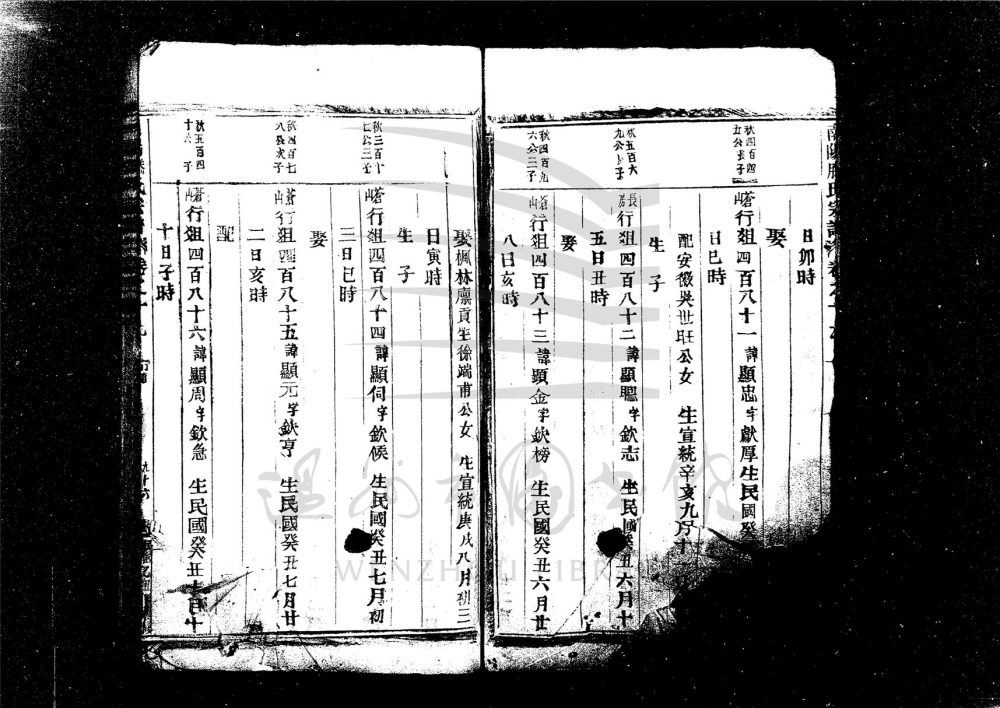 日卯時
娶
秋四百四
五公長子
蒼山行䢐四百八十一諱顯忠字獻厚生民國癸
日巳時
配安徽吳世旺公女 生宣統辛亥九月十
生子
秋五百六
九公長子
行䢐四百八十二諱顯聰字欽志 生民國癸丑六月十
五日丑時
娶
六公三子
蒼山行䢐四百八十三諱顯金字欽榜 生民國癸丑六月廿
八日亥時
娶楓林廪貢生徐端甫公女 生宣統庚戌八月初三
日寅時
生子
秋三百十
蒼山行䢐四百八十四諱顯伺字欽候 生民國癸丑七月初
三日巳時
娶
秋四百七
八公次子
蒼山行䢐四百八十五諱顯元字欽亨 生民國癸丑七月廿
二日亥時
配
秋五百四
蒼山行䢐四百八十六諱顯周字欽急 生民國癸丑七月十
十日子時
溫州市圖書館
WENZHOU LIBRARY